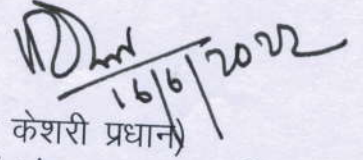 16/6/2022
केशरी प्रधान)